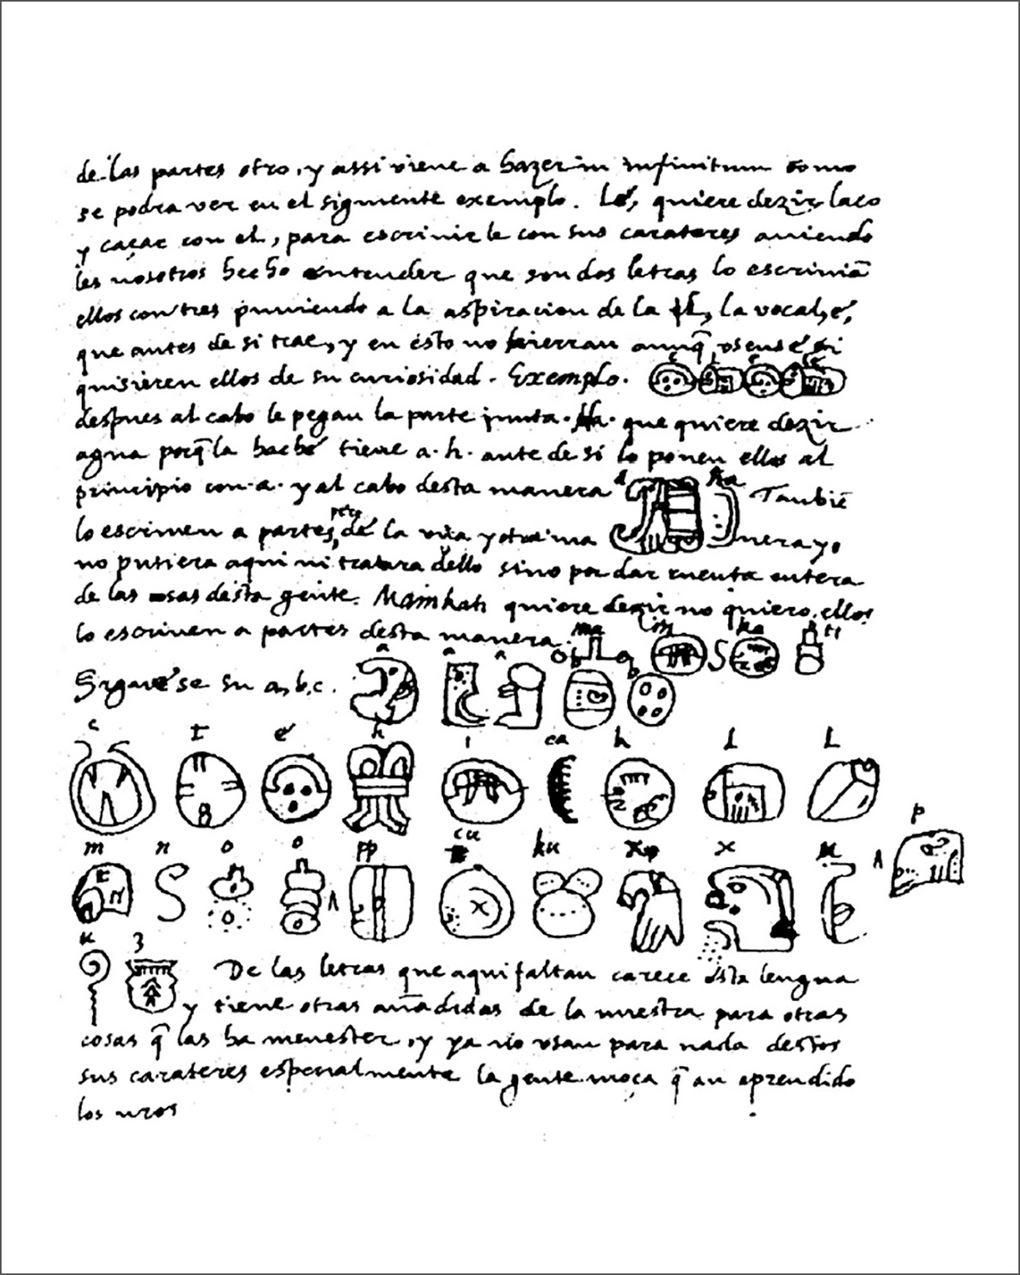 de las partes otro, y assi viene a hazer in infinitum como
se podra ver en el siguiente exemplo. Lé, quiere dezir laço
y caçar con el, para escrivirle con sus carateres aviendo
les nosotros hecho entender que son dos letras lo escriviã
ellos con tres puniendo a la aspiracion de la l, la vocal, é,
que antes de si trae, y en ésto no hierran aunq̃ usense é si
quisieren ellos de su curiosidad. Exemplo. é l é lé
despues al cabo le pegan la parte junta. Ha. que quiere dezir
agua porq̃ la hache tiene a. h. ante de si lo ponen ellos al
principio con. a. y al cabo desta manera a ha Tambiẽ
lo escriven a partes, pero de la una y otra ma nera yo
no pusiera aqui ni tratara dello sino por dar cuenta entera
de las cosas desta gente. Mainkati quiere dezir no quiero, ellos
lo escriven a partes desta manera. ma in ka ti
Siguese su a, b, c. a a a b b
c t é h i ca k l l
p
m n o o pp cu ku x x u
u z De las letras que aqui faltan carece ésta lengua
y tiene otras añadidas de la nuestra para otras
cosas q̃ las ha menester, y ya no usan para nada destos
sus carateres especialmente la gente moça q̃ an aprendido
los nros